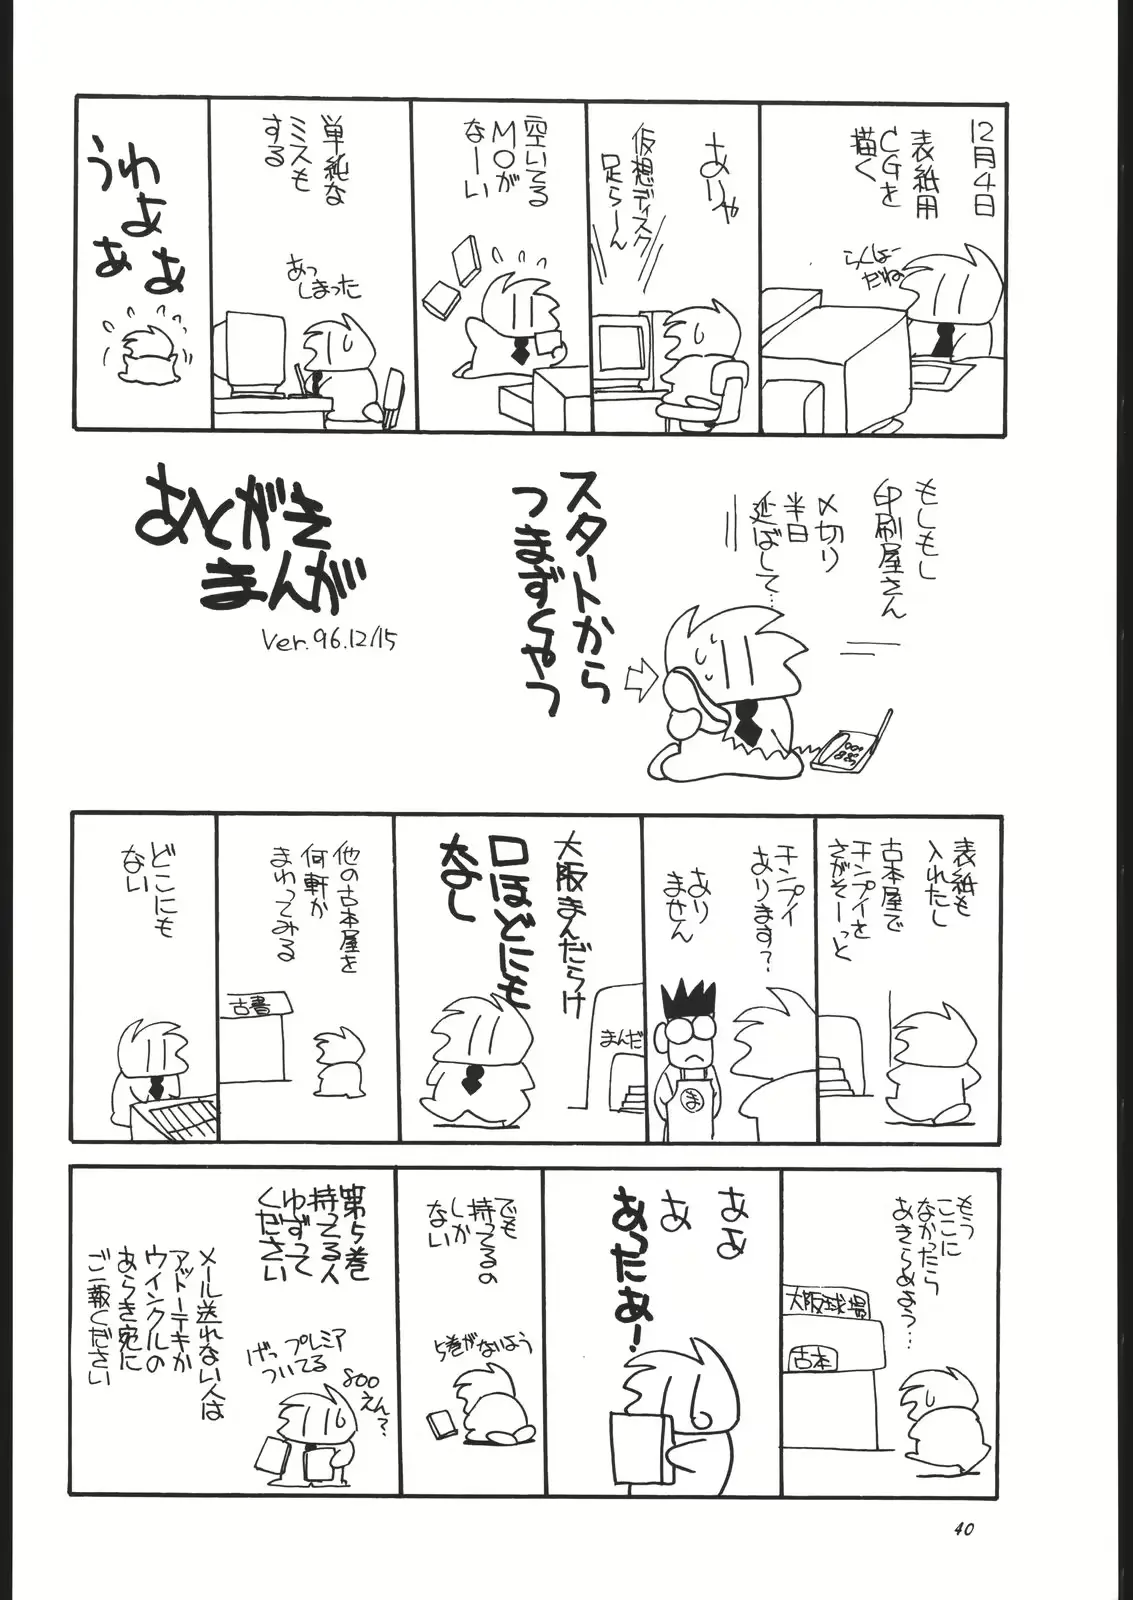 12月4日
表紙用
CGを
描く
らくしょー
だね
ありゃ
仮想ディスク
足らーん
空いてる
MOが
なーい
単純な
ミスも
する
あっ
しまった
うわぁ
よぁ
もしもし
印刷屋さん
〆切り
半日
延ばして…
スタートから
つまずくやつ
あとがき
まんが
Ver.96.12/15
表紙も
入れたし
古本屋で
チンプイを
さがそーっと
チンプイ
あります?
あり
ません
ま
大阪まんだらけ
まんだ
口ほどにも
なし
他の古本屋を
何軒か
まわってみる
古書
どこにも
ない
もう
ここに
なかったら
あきらめよう…
大阪球場
古本
あよ
あ
あったぁ!
でも
持ってるの
しか
ない
5巻がないよう
第5巻
持ってる人
ゆずって
ください
プレミア
ついてる
げっ
800
えん?
メール送れない人は
アットーテキか
ウインクルの
あらき宛に
ご一報ください
40